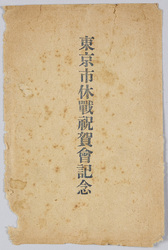 東京市休戰祝賀會記念